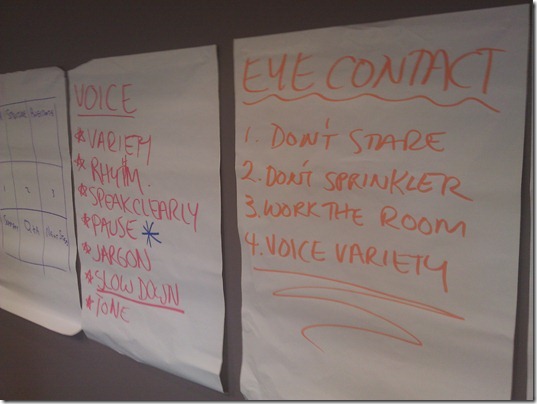 1 2 3
Q+A
VOICE
* VARIETY
* RHYTM.
* SPEAK CLEARLY
* PAUSE *
* JARGON
* SLOW DOWN
* TONE
EYE CONTACT
1. DON'T STARE
2. DON'T SPRINKLER
3. WORK THE ROOM
4. VOICE VARIETY